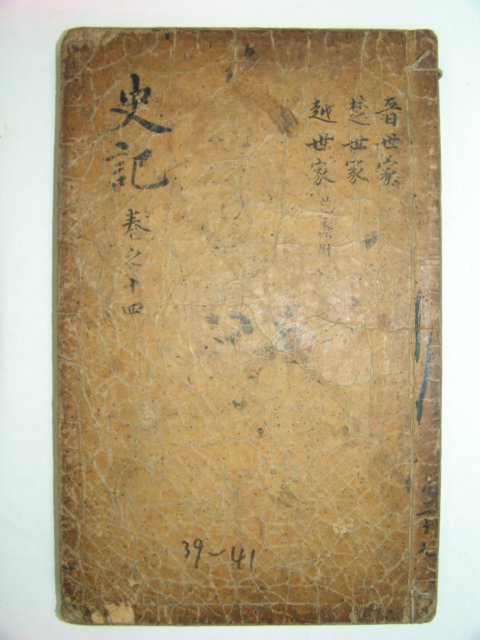 晋世家
楚世家
越世家 范蠡附
史記 卷之十四
39~41